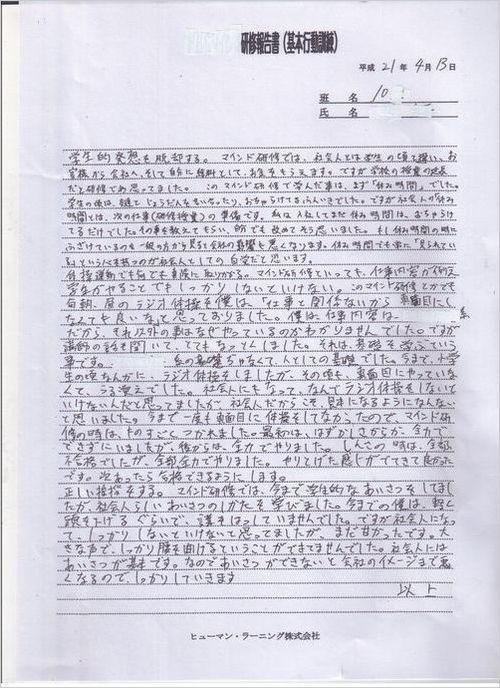 研修報告書(基本行動訓練)
平成 21 年 4 月 13 日
班 名 10
氏 名
学生的発想を脱却する。マインド研修では、社会人とは学生の頃と違い、お
客様から会社へ、そして自分に給料として、お金をもらえます。ですが学校の授業の延長
だと研修であ思ってました。このマインド研修で学んだ事は、まず「休み時間」でした。
学生の時は、
時間とは、次の仕事(研修授業)の準備です。私は入社してまだ休み時間は、おちゃらけ
てるだけでした。その事を教えてもらい、
ふざけているのを一般の方から見ると会社の影響も悪くなります。休み時間でも常に「見られてい
る」というくせを持つのが社会人としての自覚だと思います。
体操運動でも何でも真険に取りかかる。マインド研修といっても、仕事内容が例え
学生がやることでもしっかりしないといけない。このマインド研修とかでも
毎朝、昼のラジオ体操を僕は、「仕事と関係ないから真面目にし
なくても良いな」て思っておりました。僕は仕事内容は 系
だから、それ以外の事はなぜやっているのかわかりませんでした。ですが
講師の話を聞いて、とてもなっとくしました。それは、基礎を学ぶという
事です。 系の基礎ぢゃなくて、人としての基礎です。今まで、小学
生の頃なんかに、ラジオ体操をしましたが、その頃も、真面目にやっていな
くて、うる覚えでした。社会人にもなって、なんでラジオ体操をしないと
いけないんだと思ってましたが、社会人だからこそ、見本になるようにならない
と思いました。今まで一度も真面目に体操をしてなかったので、マインド研
修の時は、ものすごくつかれました。最初は、はずかしさからか、全力で
できずにいましたが、後からは、全力でやりました。しんさの時は、全部
不合格でしたが、全部全力でやりました。やりとげた感じがでてきて良かった
です。次あったら合格できるようにします。
正しい挨拶をする。マインド研修では、今まで学生的なあいさつをしてまし
たが、社会人らしいあいさつのしかたを学びました。今までの僕は、軽く
頭を下げるぐらいで、
て、しっかりしないといけないと思ってましたが、まだ甘かったです。大
きな声で、しっかり腰を曲げるということができてませんでした。社会人には
あいさつが基本です。なのであいさつができないと会社のイメージまで悪
くなるので、しっかりしていきます
以上
ヒューマン・ラーニング株式会社